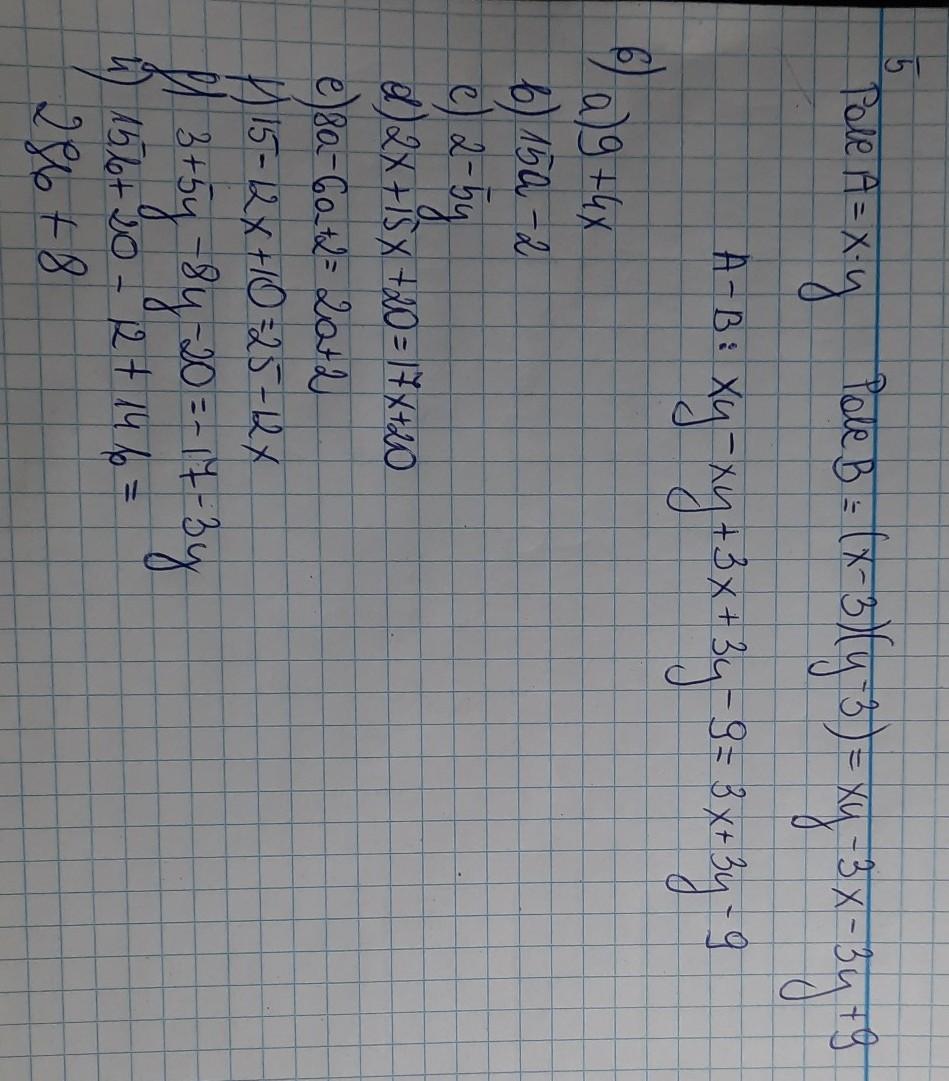 5
Pole A = x·y Pole B = (x-3)(y-3) = xy-3x-3y+9
A-B: xy-xy+3x+3y-9=3x+3y-9
6) a) 9+4x
b) 15a-2
c) 2-5y
d) 2x+15x+20=17x+20
e) 8a-6a+2=2a+2
f) 15-12x+10=25-12x
g) 3+5y-8y-20=-17-3y
h) 15b+20-12+14b=
28b+8